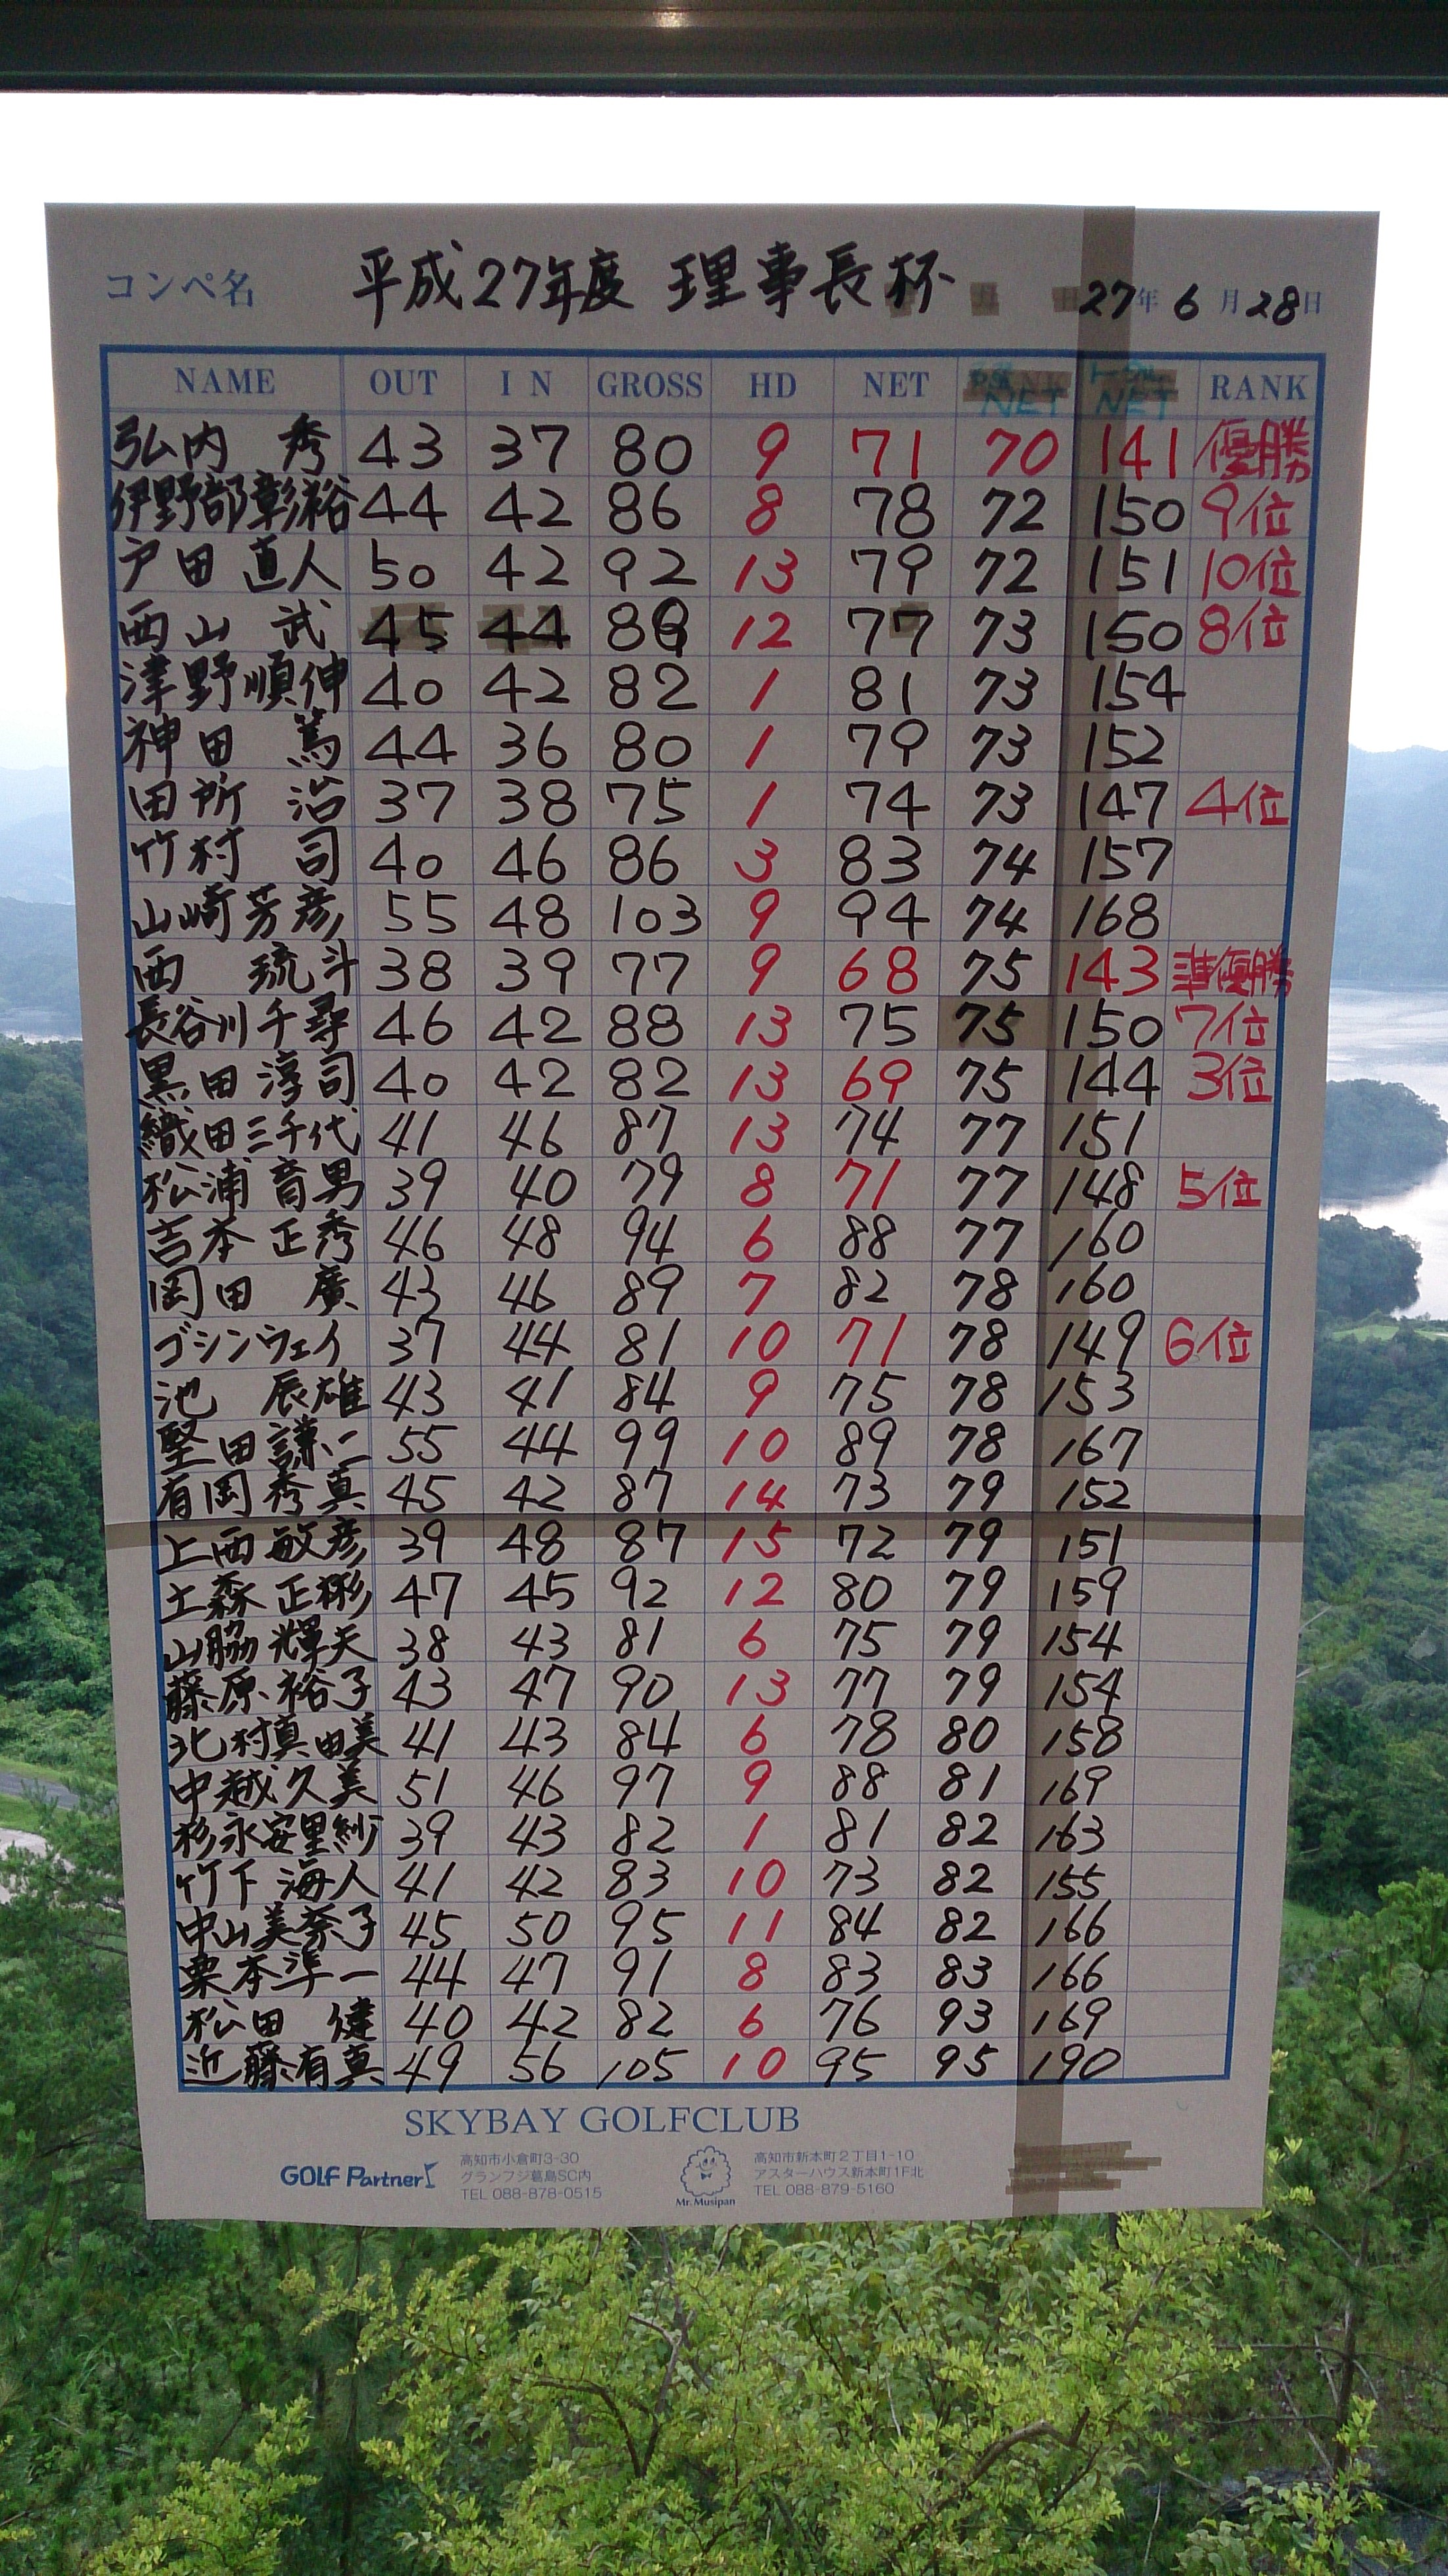 コンペ名 平成27年度 理事長杯 27年 6月28日
NAME OUT IN GROSS HD NET NET NET RANK
弘内 秀 43 37 80 9 71 70 141 優勝
伊野部彰裕 44 42 86 8 78 72 150 9位
戸田 直人 50 42 92 13 79 72 151 10位
西山 武 45 44 89 12 77 73 150 8位
津野順伸 40 42 82 1 81 73 154
神田 篤 44 36 80 1 79 73 152
田所 治 37 38 75 1 74 73 147 4位
竹村 司 40 46 86 3 83 74 157
山崎芳彦 55 48 103 9 94 74 168
西 琉斗 38 39 77 9 68 75 143 準優勝
長谷川千尋 46 42 88 13 75 75 150 7位
黒田淳司 40 42 82 13 69 75 144 3位
織田三千代 41 46 87 13 74 77 151
松浦育男 39 40 79 8 71 77 148 5位
吉本正秀 46 48 94 6 88 77 160
岡田 廣 43 46 89 7 82 78 160
ゴシンウェイ 37 44 81 10 71 78 149 6位
池 辰雄 43 41 84 9 75 78 153
堅田謙二 55 44 99 10 89 78 167
有岡秀真 45 42 87 14 73 79 152
上西敏彦 39 48 87 15 72 79 151
土森正彬 47 45 92 12 80 79 159
山脇輝夫 38 43 81 6 75 79 154
藤原裕子 43 47 90 13 77 79 154
北村真由美 41 43 84 6 78 80 158
中越久美 51 46 97 9 88 81 169
杉永安里紗 39 43 82 1 81 82 163
竹下海人 41 42 83 10 73 82 155
中山美奈子 45 50 95 11 84 82 166
栗本準一 44 47 91 8 83 83 166
松田 健 40 42 82 6 76 93 169
近藤有真 49 56 105 10 95 95 190
SKYBAY GOLFCLUB
GOLF Partner
高知市小倉町3-30
グランフジ葛島SC内
TEL 088-878-0515
Mr. Musipan
高知市新本町2丁目1-10
アスターハウス新本町1F北
TEL 088-879-5160